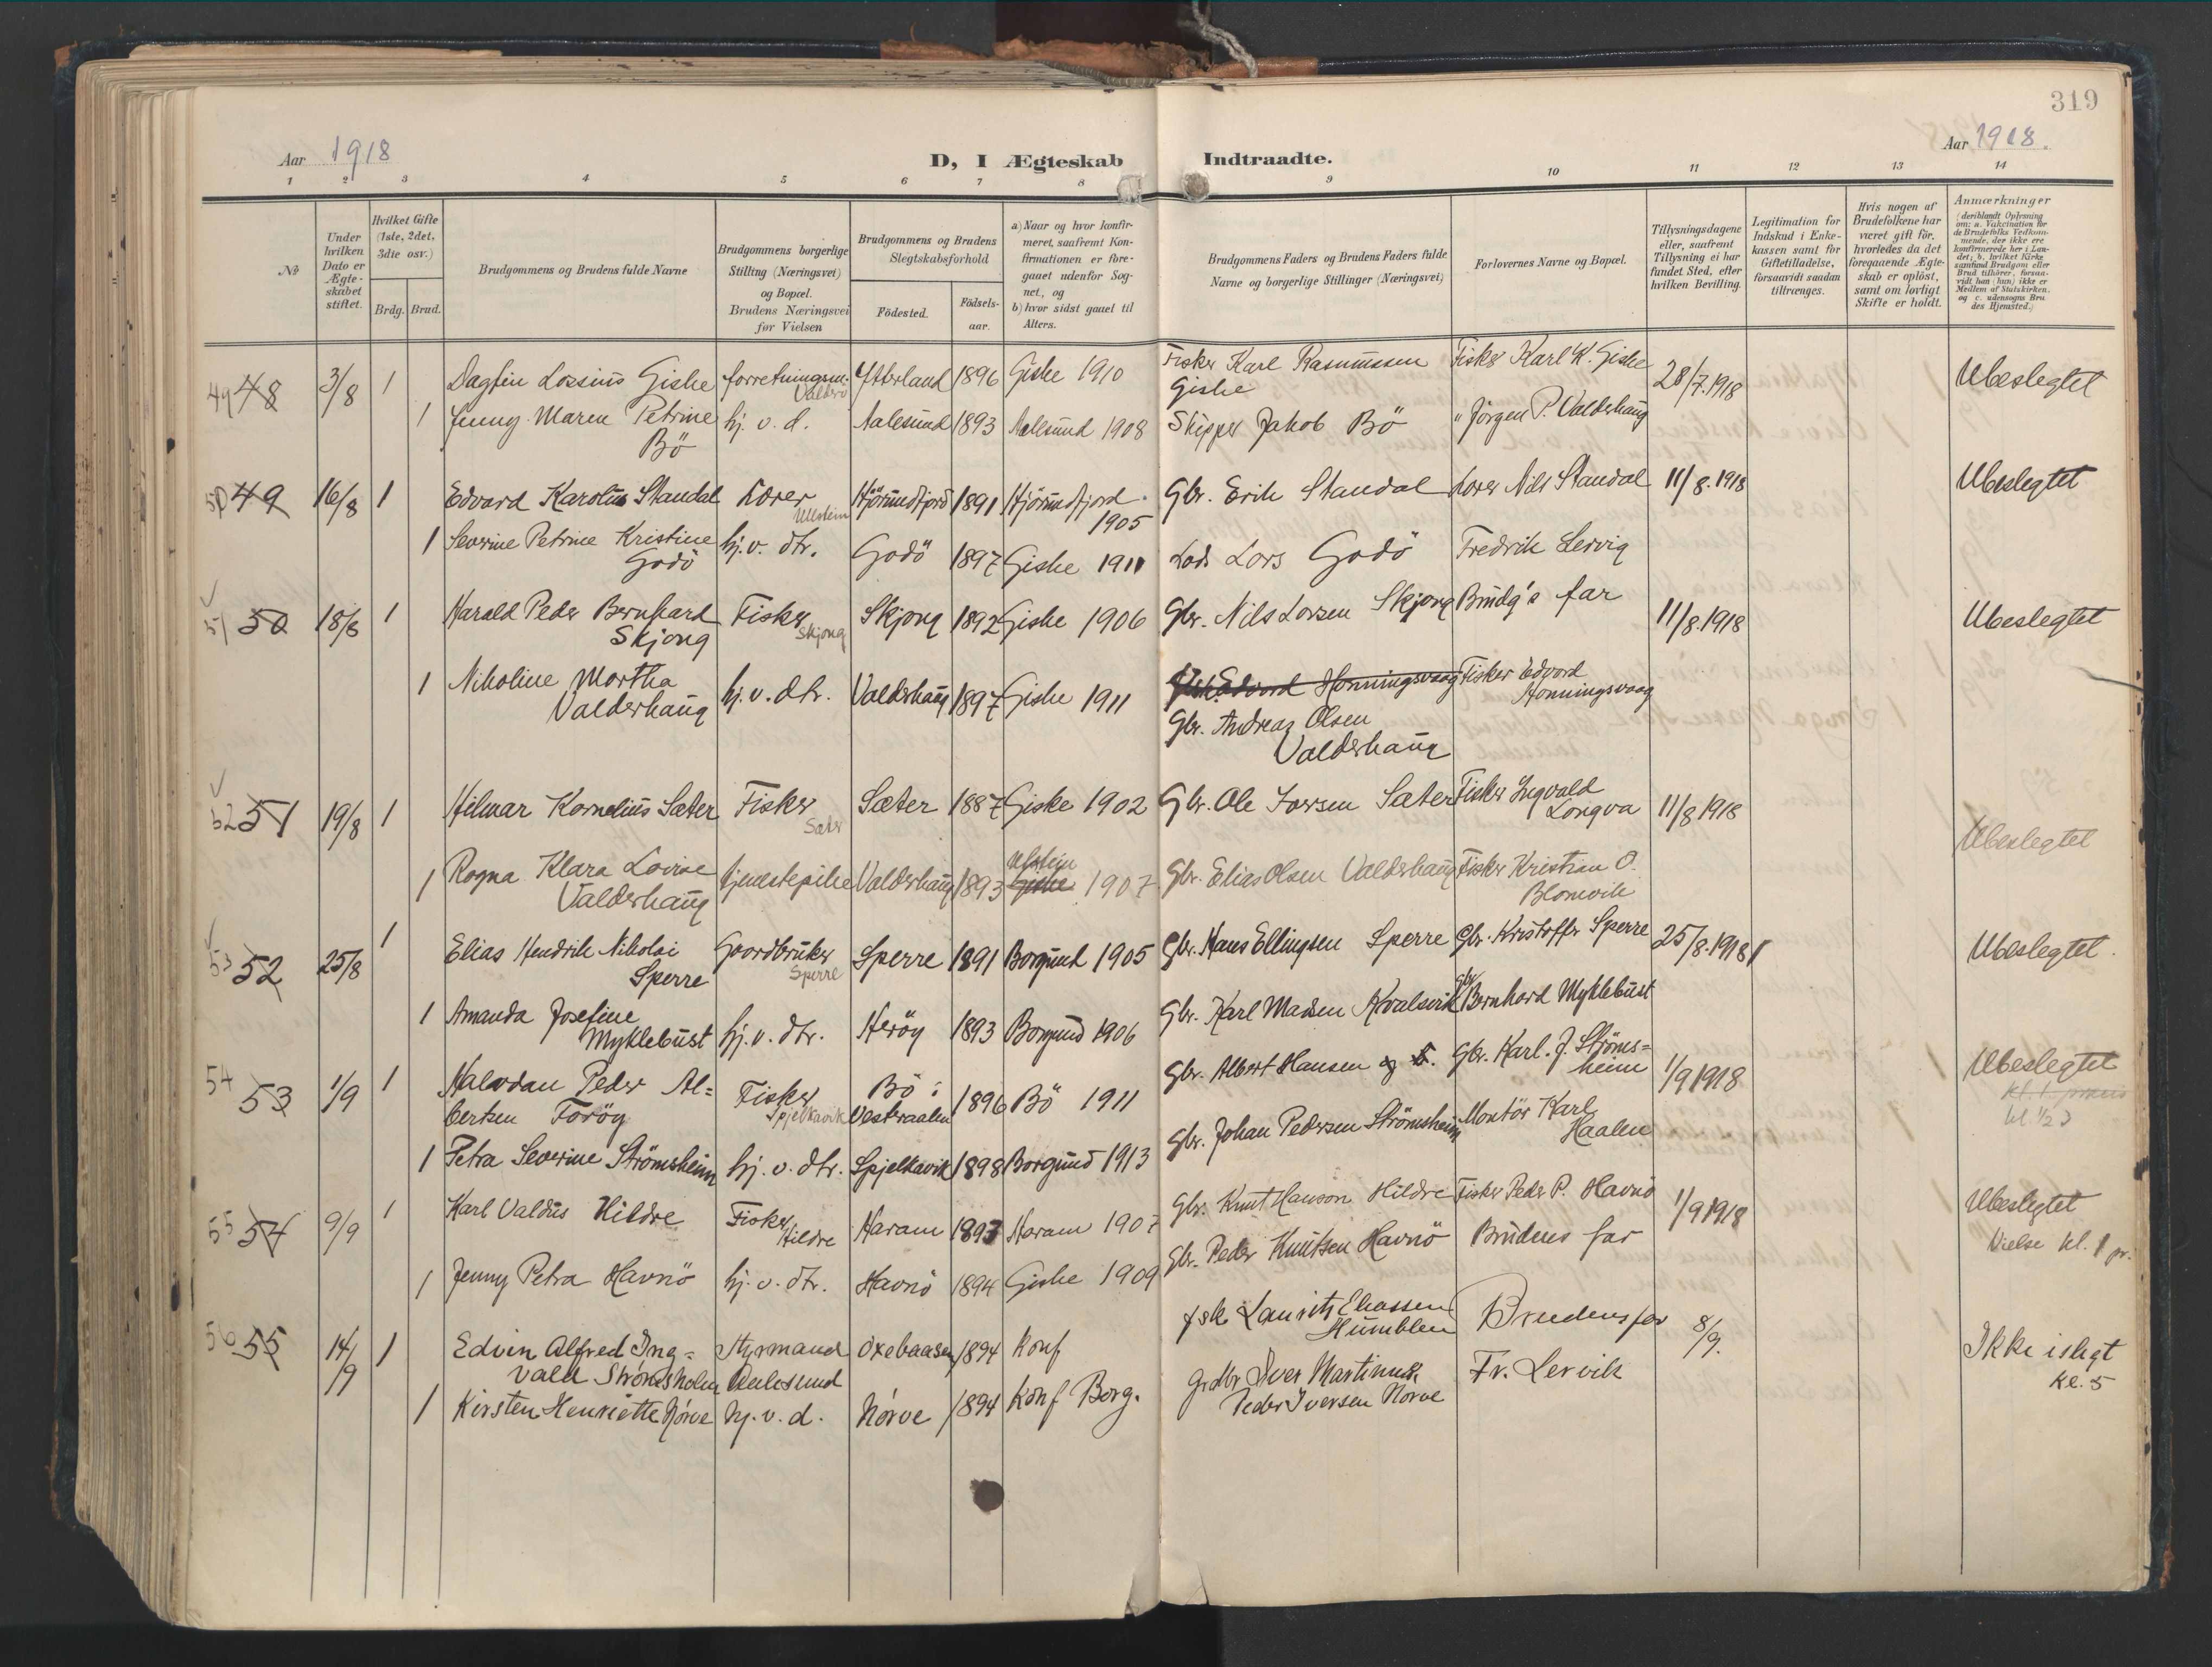 319
Aar 1918
D, I Ægteskab Indtraadte.
Aar 1918.
1 2 3 4 5 6 7 8 9 10 11 12 13 14
No
Under hvilken Dato er Ægteskabet stiftet.
Hvilket Gifte (1ste, 2det, 3die osv.)
Brdg. Brud.
Brudgommens og Brudens fulde Navne
Brudgommens borgerlige Stilling (Næringsvei) og Bopæl. Brudens Næringsvei før Vielsen
Brudgommens og Brudens Slegtskabsforhold
Födested. Födsels-aar.
a) Naar og hvor konfirmeret, saafremt Konfirmationen er foregaaet udenfor Sognet, og
b) hvor sidst gaaet til Alters.
Brudgommens Faders og Brudens Faders fulde Navne og borgerlige Stillinger (Næringsvei)
Forlovernes Navne og Bopæl.
Tillysningsdagene eller, saafremt Tillysning ei har fundet Sted, efter hvilken Bevilling.
Legitimation for Indskud i Enkekassen samt for Giftetilladelse, forsaavidt saadan tiltrænges.
Hvis nogen af Brudefolkene har været gift för, hvorledes da det foregaaende Ægteskab er oplöst, samt om lovligt Skifte er holdt.
Anmærkninger
(deriblandt Oplysning om: a. Vakcination for de Brudefolks Vedkommende, der ikke ere konfirmerede her i Landet; b. hvilket Kirkesamfund Brudgom eller Brud tilhörer, forsaavidt han (hun) ikke er Medlem af Statskirken, og c. udensogns Brudes Hjemsted.)
49 48 3/8 1 Dagfin Lossius Giske forretningsm. Valderö Ytterland 1896 Giske 1910 Fisker Karl Rasmussen Giske Fisker Karl K. Giske 28/7.1918 Ubeslegtet
1 Jenny Maren Petrine Bö hj. v. d. Aalesund 1893 Aalesund 1908 Skipper Jakob Bö " Jörgen P. Valderhaug
50 49 16/8 1 Edvard Karolus Standal Lærer Ulstein Hjörundfjord 1891 Hjörundfjord 1905 Gbr. Erik Standal Lærer Nils Standal 11/8.1918 Ubeslegtet
1 Severine Petrine Kristine Godö hj. v. dtr. Godö 1897 Giske 1911 Lods Lars Godö Fredrik Lervig
51 50 18/8 1 Harald Peder Bernhard Skjong Fisker Skjong Skjong 1892 Giske 1906 Gbr. Nils Larsen Skjong Brudg's far 11/8.1918 Ubeslegtet
1 Nikoline Martha Valderhaug hj. v. dtr. Valderhaug 1897 Giske 1911 Edvard Honningsvaag Fisker Edvard Honningsvaag
Gbr. Andreas Olsen Valderhaug
52 51 19/8 1 Hilmar Kornelius Sæter Fisker Sæter Sæter 1887 Giske 1902 Gbr. Ole Iversen Sæter Fisker Ingvald Longva 11/8 1918 Ubeslegtet
1 Ragna Klara Lovise Valderhaug tjenestepike Valderhaug 1893 Giske Ulstein 1907 Gbr. Elias Olsen Valderhaug Fisker Kristian O. Blomvik
53 52 25/8 1 Elias Hendrik Nikolai Sperre Gaardbruker Sperre Sperre 1891 Borgund 1905 Gbr. Hans Ellingsen Sperre Gbr. Kristoffer Sperre 25/8.1918 Ubeslegtet.
1 Amanda Josefine Myklebust hj. v. dtr. Heröy 1893 Borgund 1906 Gbr. Karl Madsen Kvalsvik Gbr. Bernhard Myklebust
54 53 1/9 1 Halvdan Peder Al=bertsen Toröy Fisker Spjelkavik Bö i Vesteraalen 1896 Bö 1911 Gbr. Albert Hansen og Gbr. Karl. J. Ströms=heim 1/9 1918 Ubeslegtet
kl. ½ 3
1 Petra Severine Strömsheim hj. v. dtr. Spjelkavik 1898 Borgund 1913 Gbr. Johan Pedersen Strömsheim Montör Karl Haalen
55 54 9/9 1 Karl Valdus Hildre Fisker Hildre Haram 1893 Haram 1907 Gbr. Knut Hanson Hildre Fisker Peder P. Havnö 1/9 1918 Ubeslegtet
Vielse kl. 1 pr.
1 Jenny Petra Havnö hj. v. dtr. Havnö 1894 Giske 1909 Gbr. Peder Knutsen Havnö Brudens far
56 55 14/9 1 Edvin Alfred Ing=vald Strømsholm Styrmand Aalesund Oxebaasen 1894 Konf fsk. Laurits Eliassen Humblen Brudens far 8/9. Ikke islegt
Kl. 5
1 Kirsten Henriette Nörve hj. v. d. Nörve 1894 Konf Borg. grdbr Iver Martinus Peder Iversen Nörve Fr. Lervik